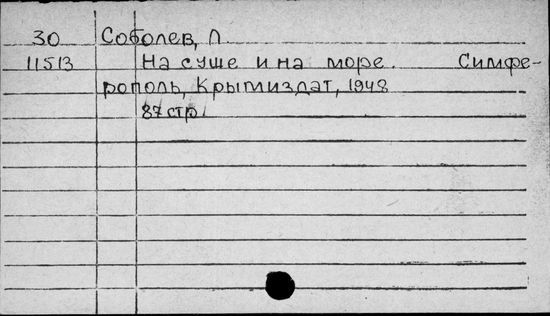 30 Соболев, Л
11513 На суше и на море. Симфе-
рополь, Крымиздат, 1948
87 стр.